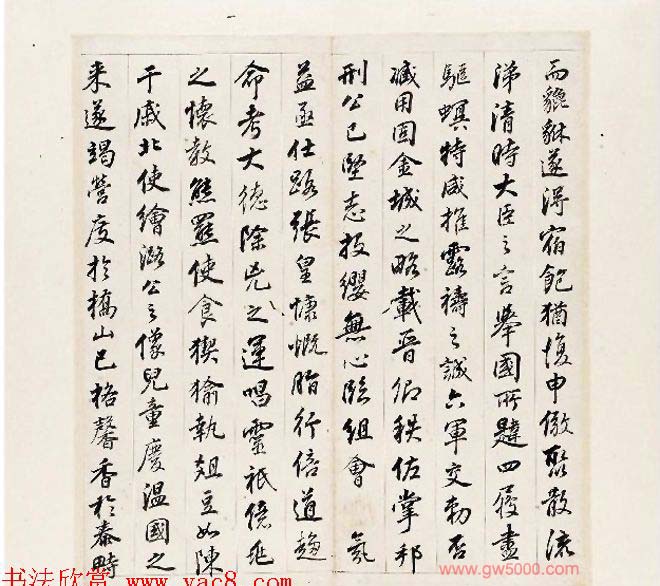 而貔貅遂得宿飽猶復申儆聚散流
涕清時大臣之言舉國所韙四履盡
驅螟特咸推露禱之誠六軍交勑否
臧用固金城之略載晉卿秩佐掌邦
刑公已堅志投纓無心臨組會 氣
益亟仕路張皇慷慨脂行倍道趨
命考大德除兇之運唱靈祇億兆
之懷敎熊羆使食猰㺄執俎豆如陳
干戚北使繪潞公之像兒童慶溫國之
来遂竭營度於橋山已格馨香於泰畤
书法欣赏 www.yac8.com
www.gw5000.com